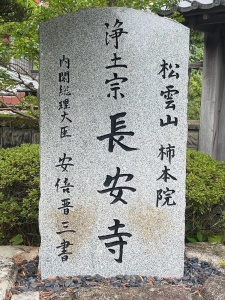 松雲山 柿本院
浄土宗 長安寺
内閣総理大臣 安倍晋三書